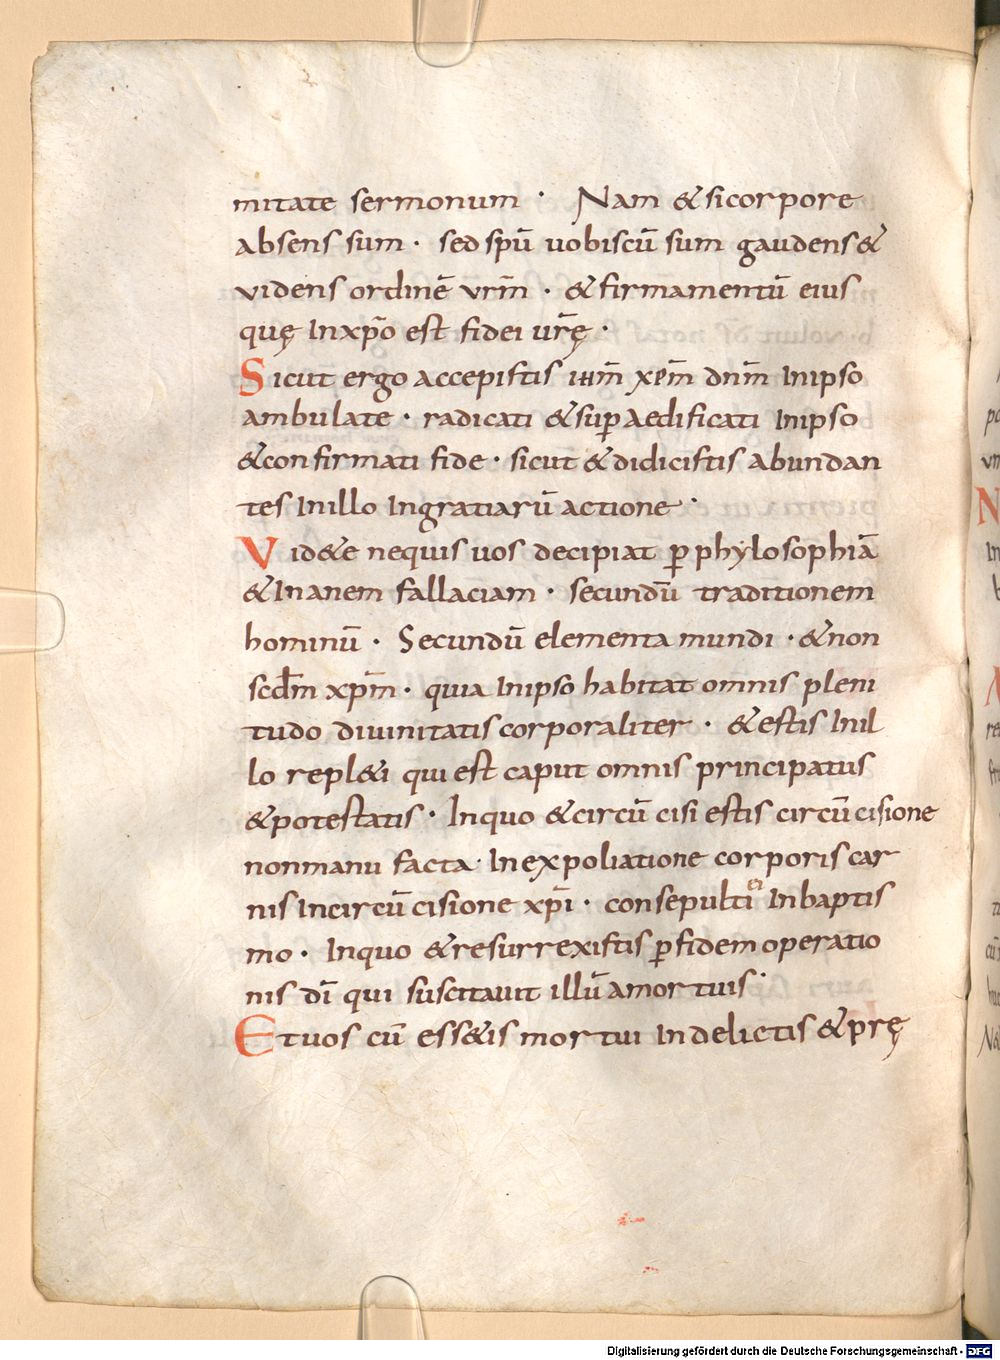 mitate sermonum · Nam & si corpore
absens sum · sed spū uobiscū sum gaudens &
videns ordinē vrm̄ · & firmamentū eius
quę In xp̄o est fidei ur̄ę ·
Sicut ergo accepistis ihm̄ xp̄m dnm̄ In ipso
ambulate · radicati & sup̄ aedificati In ipso
& confirmati fide · sicut & didicistis abundan
tes In illo In gratiarū actione ·
Vid&e nequis uos decipiat p̱ phylosophiā
& Inanem fallaciam · secundū traditionem
hominū · Secundū elementa mundi · & non
scd̄m xp̄m · quia In ipso habitat omnis pleni
tudo diuinitatis corporaliter · & estis In il
lo repl&i qui est caput omnis principatus
& potestatis · In quo & circū cisi estis circū cisione
non manu facta · In expoliatione corporis car
nis In circū cisione xp̄i · consepulti ei In baptis
mo · In quo & resurrexistis p̱ fidem operatio
nis dī qui suscitauit illū a mortuis ·
Et uos cū ess&is mortui In delictis & prę
Digitalisierung gefördert durch die Deutsche Forschungsgemeinschaft · DFG